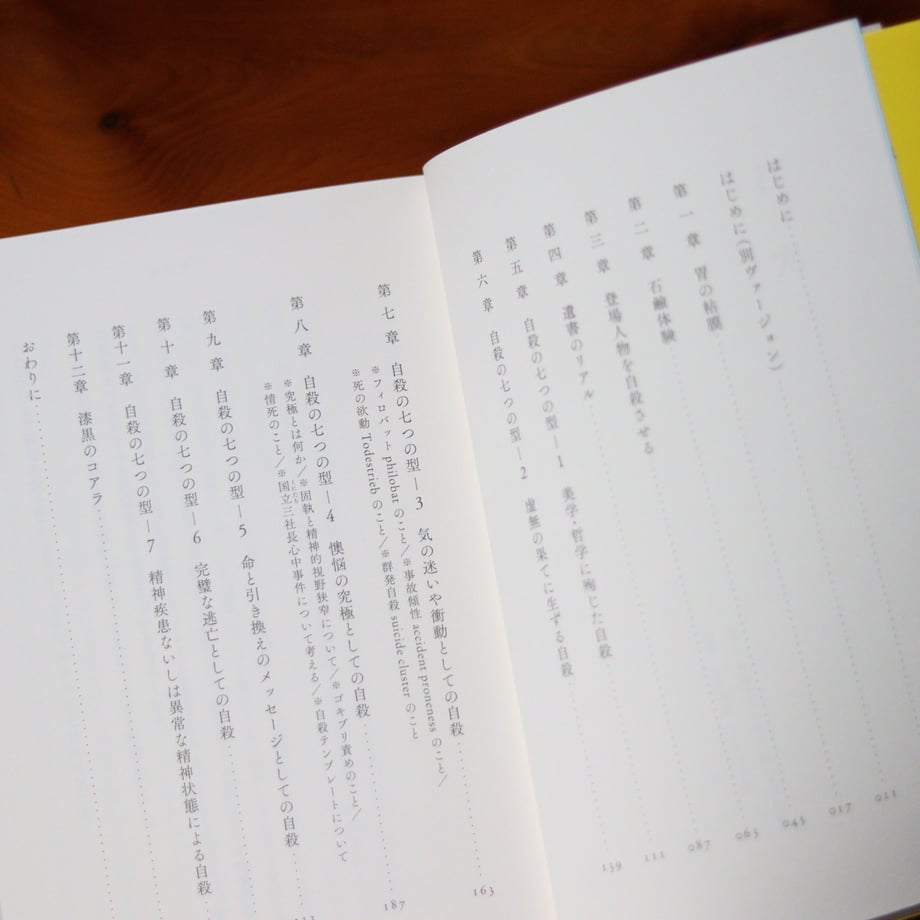 はじめに
はじめに(別ヴァージョン) 011
第一章 胃の粘膜 017
第二章 石鹸体験 045
第三章 登場人物を自殺させる 063
第四章 遺書のリアル 087
第五章 自殺の七つの型―1 美学・哲学に殉じた自殺 111
第六章 自殺の七つの型―2 虚無の果てに生ずる自殺 139
第七章 自殺の七つの型―3 気の迷いや衝動としての自殺 163
※フィロバット philobat のこと/※事故傾性 accident proneness のこと/
※死の欲動 Todestrieb のこと/※群発自殺 suicide cluster のこと
第八章 自殺の七つの型―4 懊悩の究極としての自殺 187
※究極とは何か/※固執と精神的視野狭窄について/※ゴキブリ責めのこと/
※情死のこと/※国立三社長心中事件について考える/※自殺テンプレートについて
第九章 自殺の七つの型―5 命と引き換えのメッセージとしての自殺
第十章 自殺の七つの型―6 完璧な逃亡としての自殺
第十一章 自殺の七つの型―7 精神疾患ないしは異常な精神状態による自殺
第十二章 漆黒のコアラ
おわりに